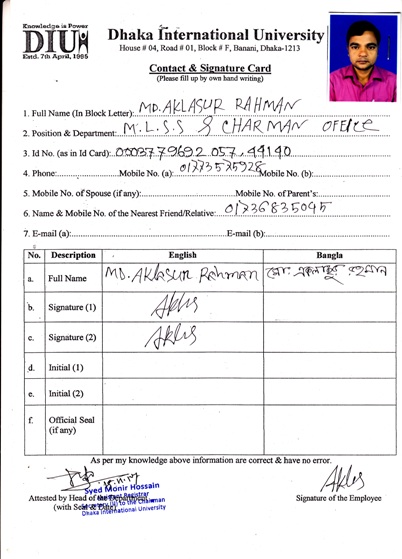 Knowledge is Power
DIU
Estd. 7th April, 1995
Dhaka International University
House # 04, Road # 01, Block # F, Banani, Dhaka-1213
Contact & Signature Card
(Please fill up by own hand writing)
1. Full Name (In Block Letter): MD. AKLASUR RAHMAN
2. Position & Department: M.L.S.S & CHARMAN OFFICE
3. Id No. (as in Id Card): 0003779692 057,44140
4. Phone: Mobile No. (a): 01773575928 Mobile No. (b):
5. Mobile No. of Spouse (if any): Mobile No. of Parent's:
6. Name & Mobile No. of the Nearest Friend/Relative: 01736835095
7. E-mail (a): E-mail (b):
No. Description English Bangla
a. Full Name MD. AKlasur Rahman মোঃ রহমান
b. Signature (1)
c. Signature (2)
d. Initial (1)
e. Initial (2)
f. Official Seal (if any)
As per my knowledge above information are correct & have no error.
Syed Monir Hossain
Attested by Head of the Department
(with Seal & Date)
Assistant Registrar
Secretary to the Chairman
Dhaka International University
Signature of the Employee